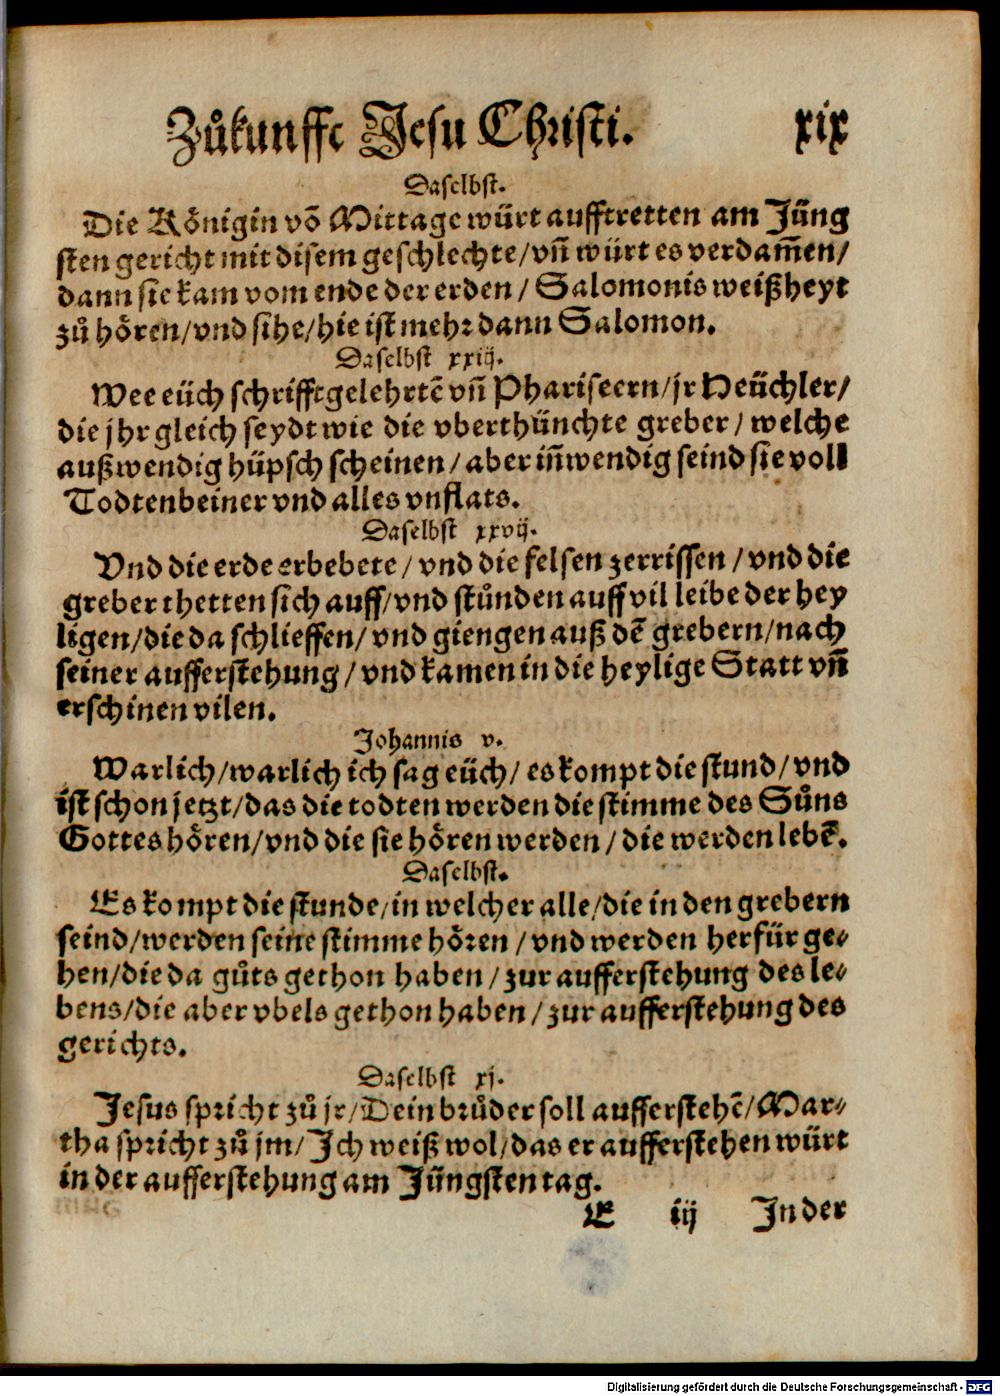 Zůkunfft Jesu Christi. xix
Daselbst.
Die Königin võ Mittage würt aufftretten am Jüng
sten gericht mit disem geschlechte/vñ würt es verdam̃en/
dann sie kam vom ende der erden/ Salomonis weißheyt
zů hören/vnd sihe/hie ist mehr dann Salomon.
Daselbst xxiij.
Wee eüch schrifftgelehrtẽ vñ Phariseern/jr Heüchler/
die jhr gleich seydt wie die vberthünchte greber/ welche
außwendig hüpsch scheinen/aber iñwendig seind sie voll
Todtenbeiner vnd alles vnflats.
Daselbst xxvij.
Vnd die erde erbebete/ vnd die felsen zerrissen/vnd die
greber thetten sich auff/vnd stůnden auff vil leibe der hey
ligen/die da schlieffen/ vnd giengen auß dẽ grebern/nach
seiner aufferstehung/vnd kamen in die heylige Statt vñ
erschinen vilen.
Johannis v.
Warlich/warlich ich sag eüch/ es kompt die stund/vnd
ist schon jetzt/das die todten werden die stimme des Sůns
Gottes hören/vnd die sie hören werden/ die werden lebẽ.
Daselbst.
Es kompt die stunde/in welcher alle/die in den grebern
seind/werden seine stimme hören/vnd werden herfür ge-
hen/die da gůts gethon haben/zur aufferstehung des le-
bens/die aber vbels gethon haben/zur aufferstehung des
gerichts.
Daselbst xj.
Jesus spricht zů jr/Dein brůder soll aufferstehẽ/Mar-
tha spricht zů jm/Ich weiß wol/das er aufferstehen würt
in der aufferstehung am Jüngsten tag.
E iij In der
Digitalisierung gefördert durch die Deutsche Forschungsgemeinschaft - DFG